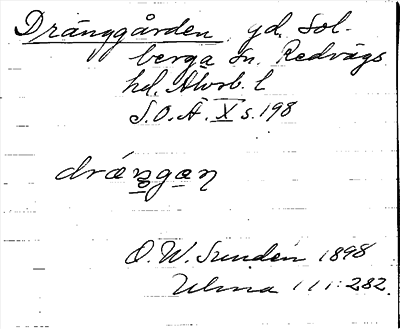 Dränggården, gd. Sol-
berga sn. Redvägs
hd. Älvsb. l
S.O.Ä. X s. 198
drángan
O. W. Sundén 1898
Ulma 111:282.